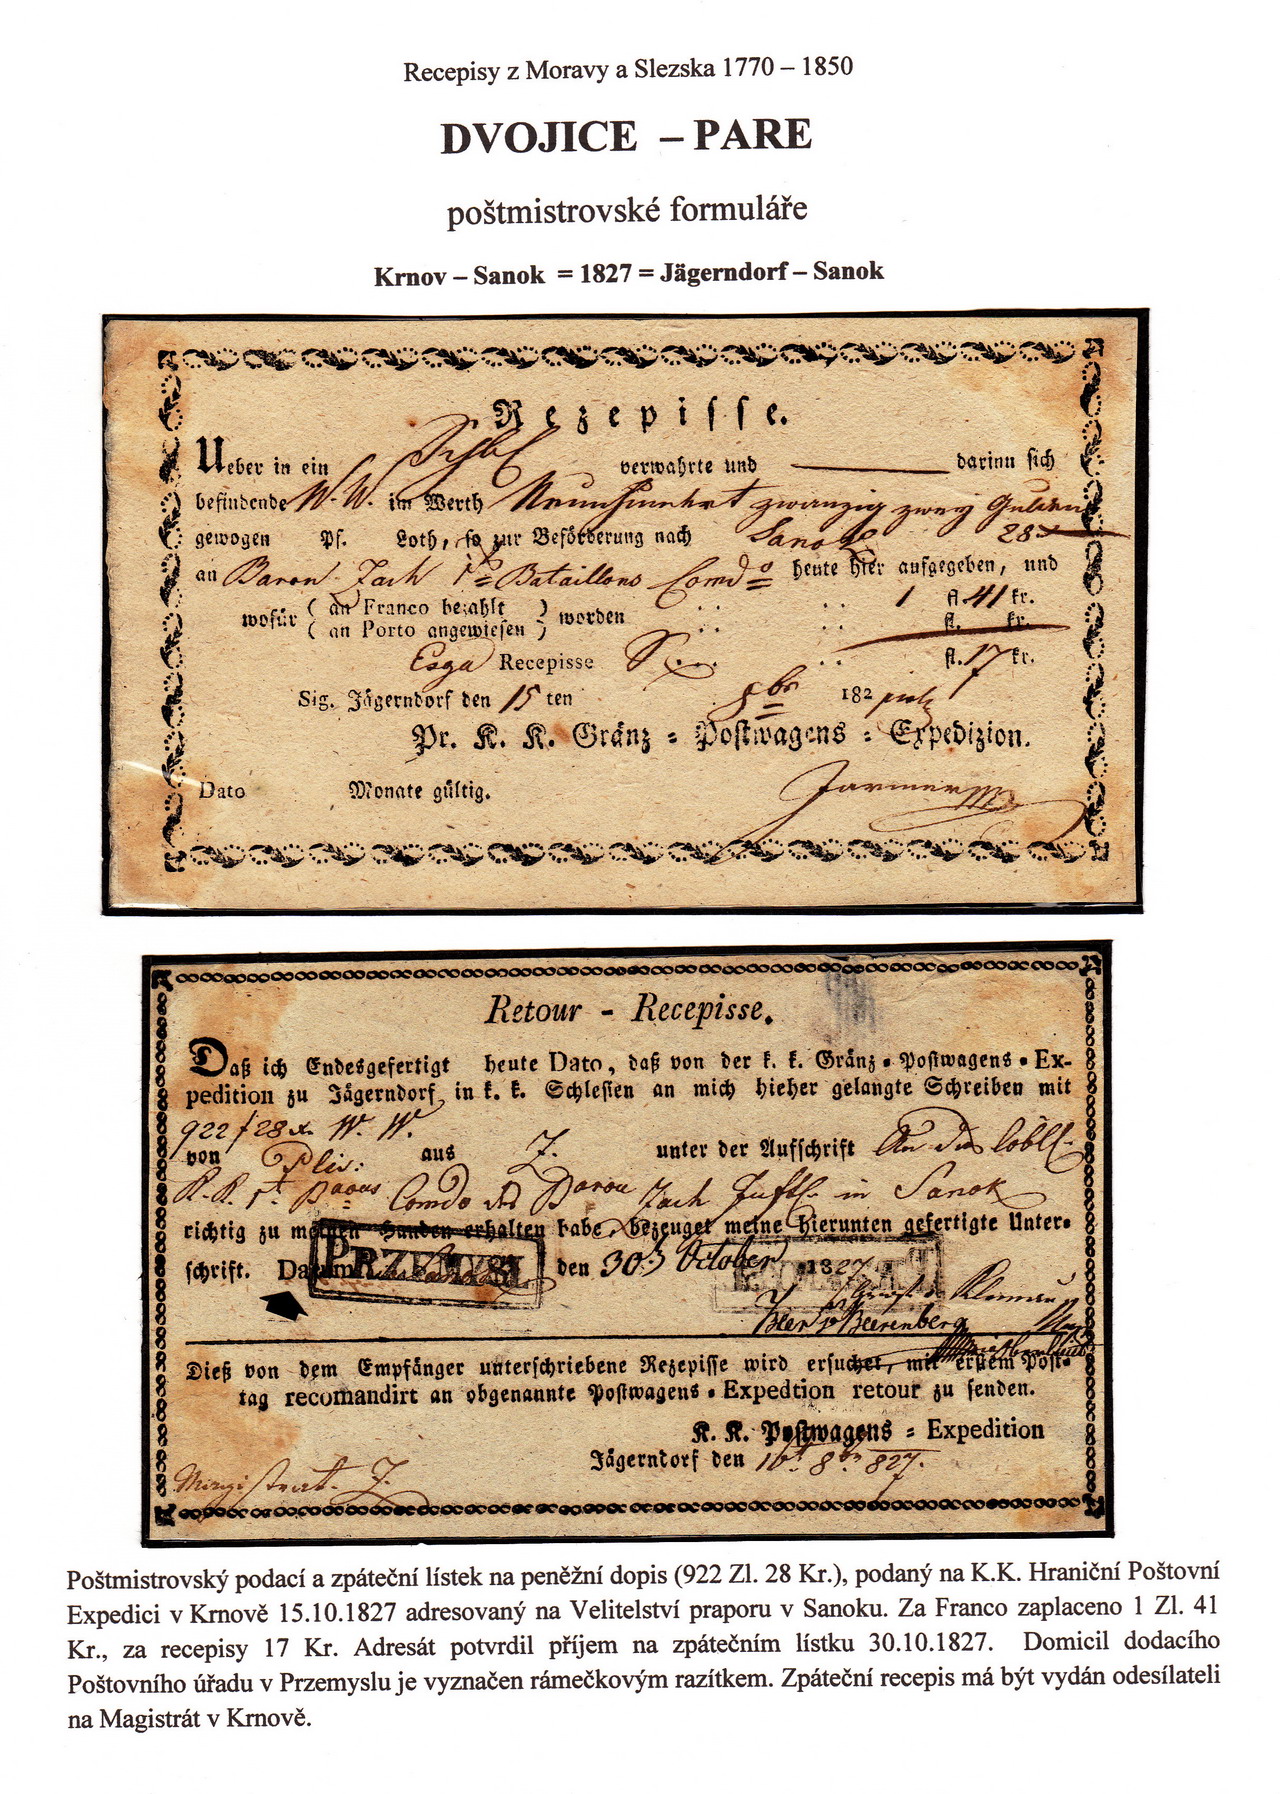 Recepisy z Moravy a Slezska 1770 – 1850
DVOJICE – PARE
poštmistrovské formuláře
Krnov – Sanok = 1827 = Jägerndorf – Sanok
Rezepisse.
Ueber in ein verwahrte und darinn sich
befindende W. W. im Werth Neunhundert zwanzig zwey Gulden
gewogen Pf. Loth, so zur Beförderung nach Sanok 28 x
an Baron Zach 1. Bataillons Comdo heute hier aufgegeben, und
wofür ( an Franco bezahlt ) worden 1 fl. 41 kr.
( an Porto angewiesen ) fl. kr.
Recepisse fl. 17 kr.
Sig. Jägerndorf den 15 ten 8br 182
Pr. K. K. Gränz = Postwagens = Expedizion.
Dato Monate gültig.
Retour - Recepisse.
Daß ich Endesgefertigt heute Dato, daß von der k. k. Gränz = Postwagens = Ex-
pedition zu Jägerndorf in k. k. Schlesien an mich hieher gelangte Schreiben mit
922 f 28 x. W. W.
von aus J. unter der Aufschrift An das löbl.
K. K. 1t. Comdo des Baron Zach in Sanok
richtig zu meinen Handen erhalten habe, bezeuget meine hierunten gefertigte Unter=
schrift. Datum den 30 October 1827
PRZEMYSL
Beer v Beerenberg
Dieß von dem Empfänger unterschriebene Rezepisse wird ersuchet, mit erstem Post=
tag recomandirt an obgenannte Postwagens = Expedtion retour zu senden.
K. K. Postwagens = Expedition
Jägerndorf den 16t. 8br 827.
Magistrat. J.
Poštmistrovský podací a zpáteční lístek na peněžní dopis (922 Zl. 28 Kr.), podaný na K.K. Hraniční Poštovní
Expedici v Krnově 15.10.1827 adresovaný na Velitelství praporu v Sanoku. Za Franco zaplaceno 1 Zl. 41
Kr., za recepisy 17 Kr. Adresát potvrdil příjem na zpátečním lístku 30.10.1827. Domicil dodacího
Poštovního úřadu v Przemyslu je vyznačen rámečkovým razítkem. Zpáteční recepis má být vydán odesílateli
na Magistrát v Krnově.